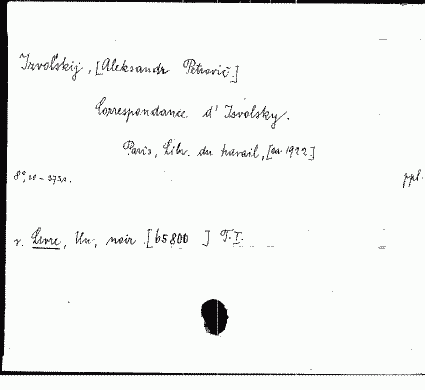 Izvol'skij, [Aleksandr Petrovič.]
Correspondance d'Isvolsky.
Paris, Libr. du travail, [ca 1922]
8°, ppl.
v. Livre, Un, noir [65800 ] T.I.